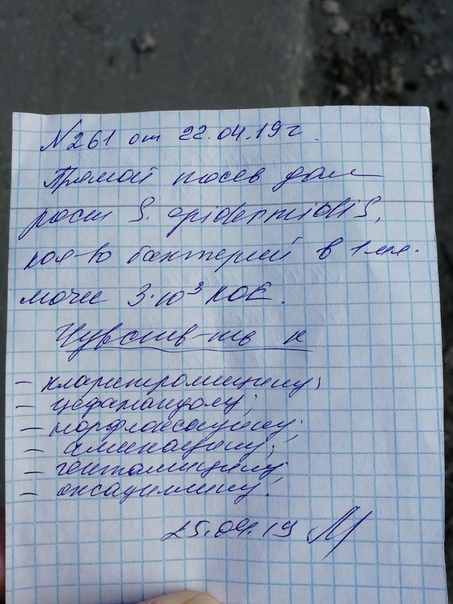 N261 от 22.04.19г.
Прямой посев дал
рост S. epidermidis,
кол-во бактерий в 1 мл.
мочи 3·10³ КОЕ.
Чувств-ть к
– кларитромицину;
– цефамандолу;
– норфлоксацину;
– амикацину;
– гентамицину;
– оксациллину.
25.04.19